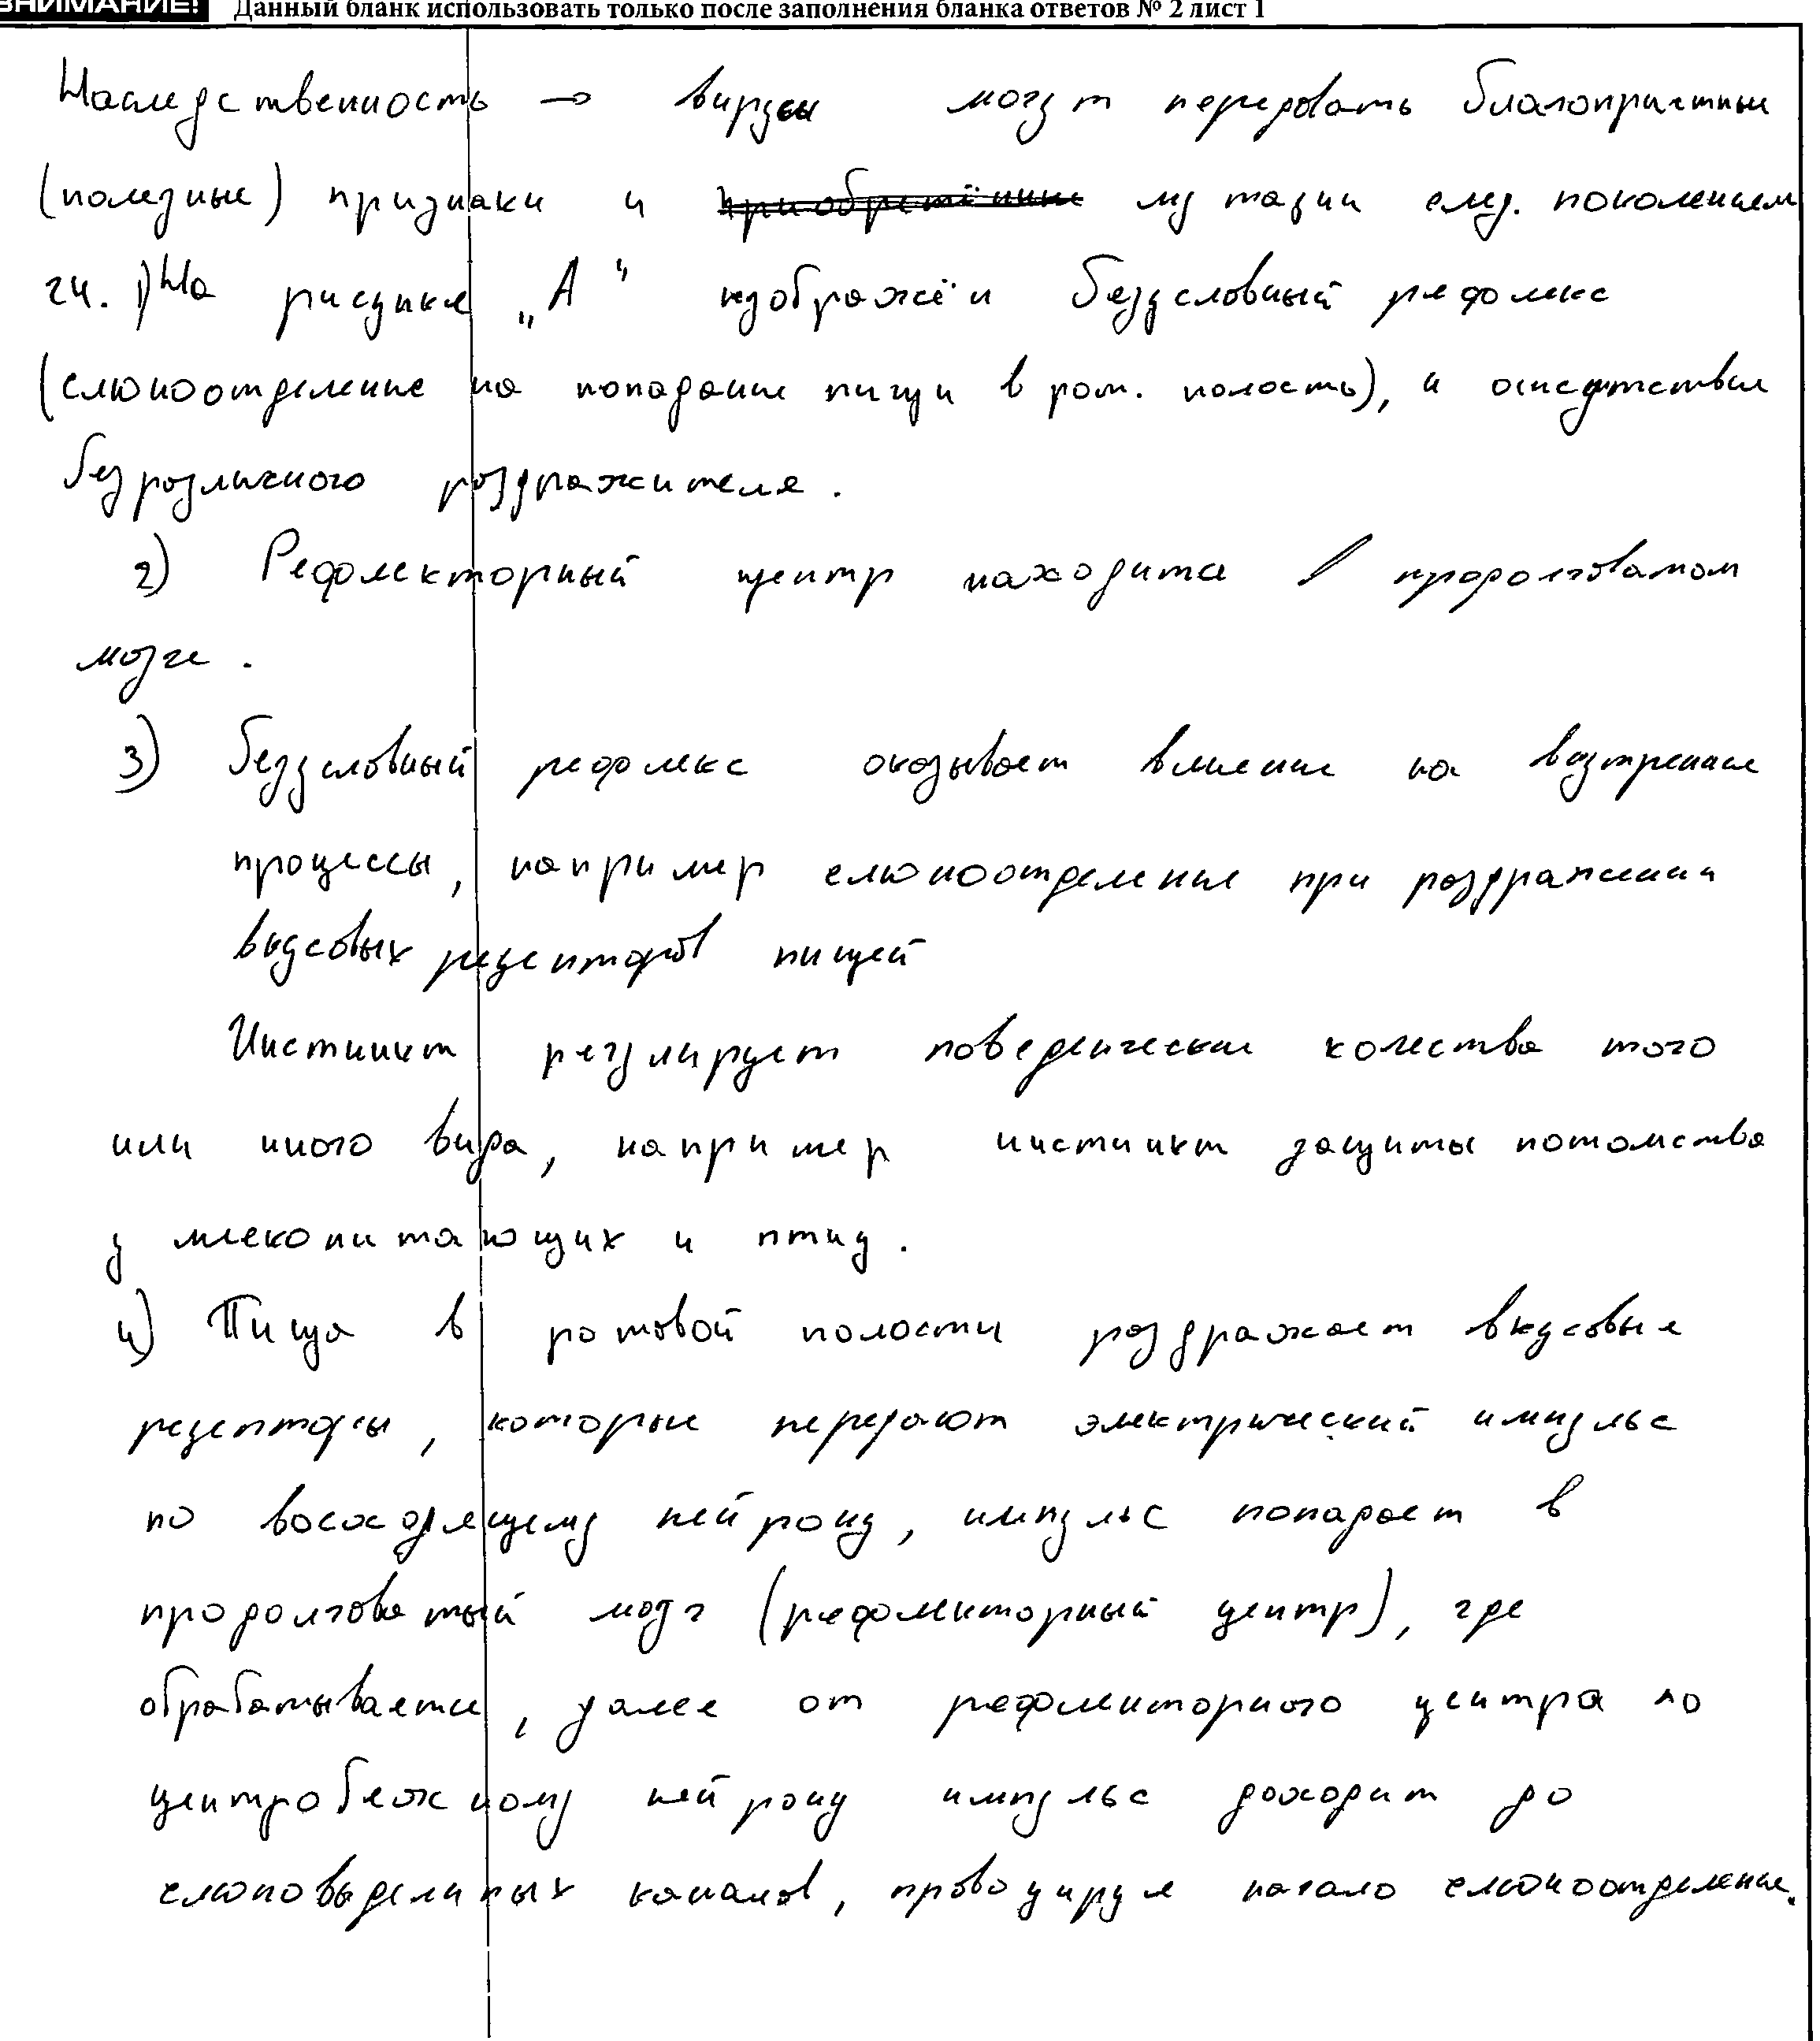 ВНИМАНИЕ! Данный бланк использовать только после заполнения бланка ответов № 2 лист 1
Наследственность → вирусы могут передовать благоприятные
(полезные) признаки и приобретённые мутации след. поколениям
24. 1) На рисунке „А" изображён безусловный рефлекс
(слюноотделение на попадание пищи в рот. полость), и отсутствие
безразличного раздражителя.
2) Рефлекторный центр находится в продолговатом
мозге.
3) Безусловный рефлекс оказывает влияние на внутренние
процессы, например слюноотделение при раздражении
вкусовых рецепторов пищей
Инстинкт регулирует поведенческие качества того
или иного вида, например инстинкт защиты потомства
у млекопитающих и птиц.
4) Пища в ротовой полости раздражает вкусовые
рецепторы, которые передают электрический импульс
по восходящему нейрону, импульс попадает в
продолговатый мозг (рефлекторный центр), где
обрабатывается, далее от рефлекторного центра по
центробежному нейрону импульс доходит до
слюновыделиных каналов, провоцируя начало слюноотделение.